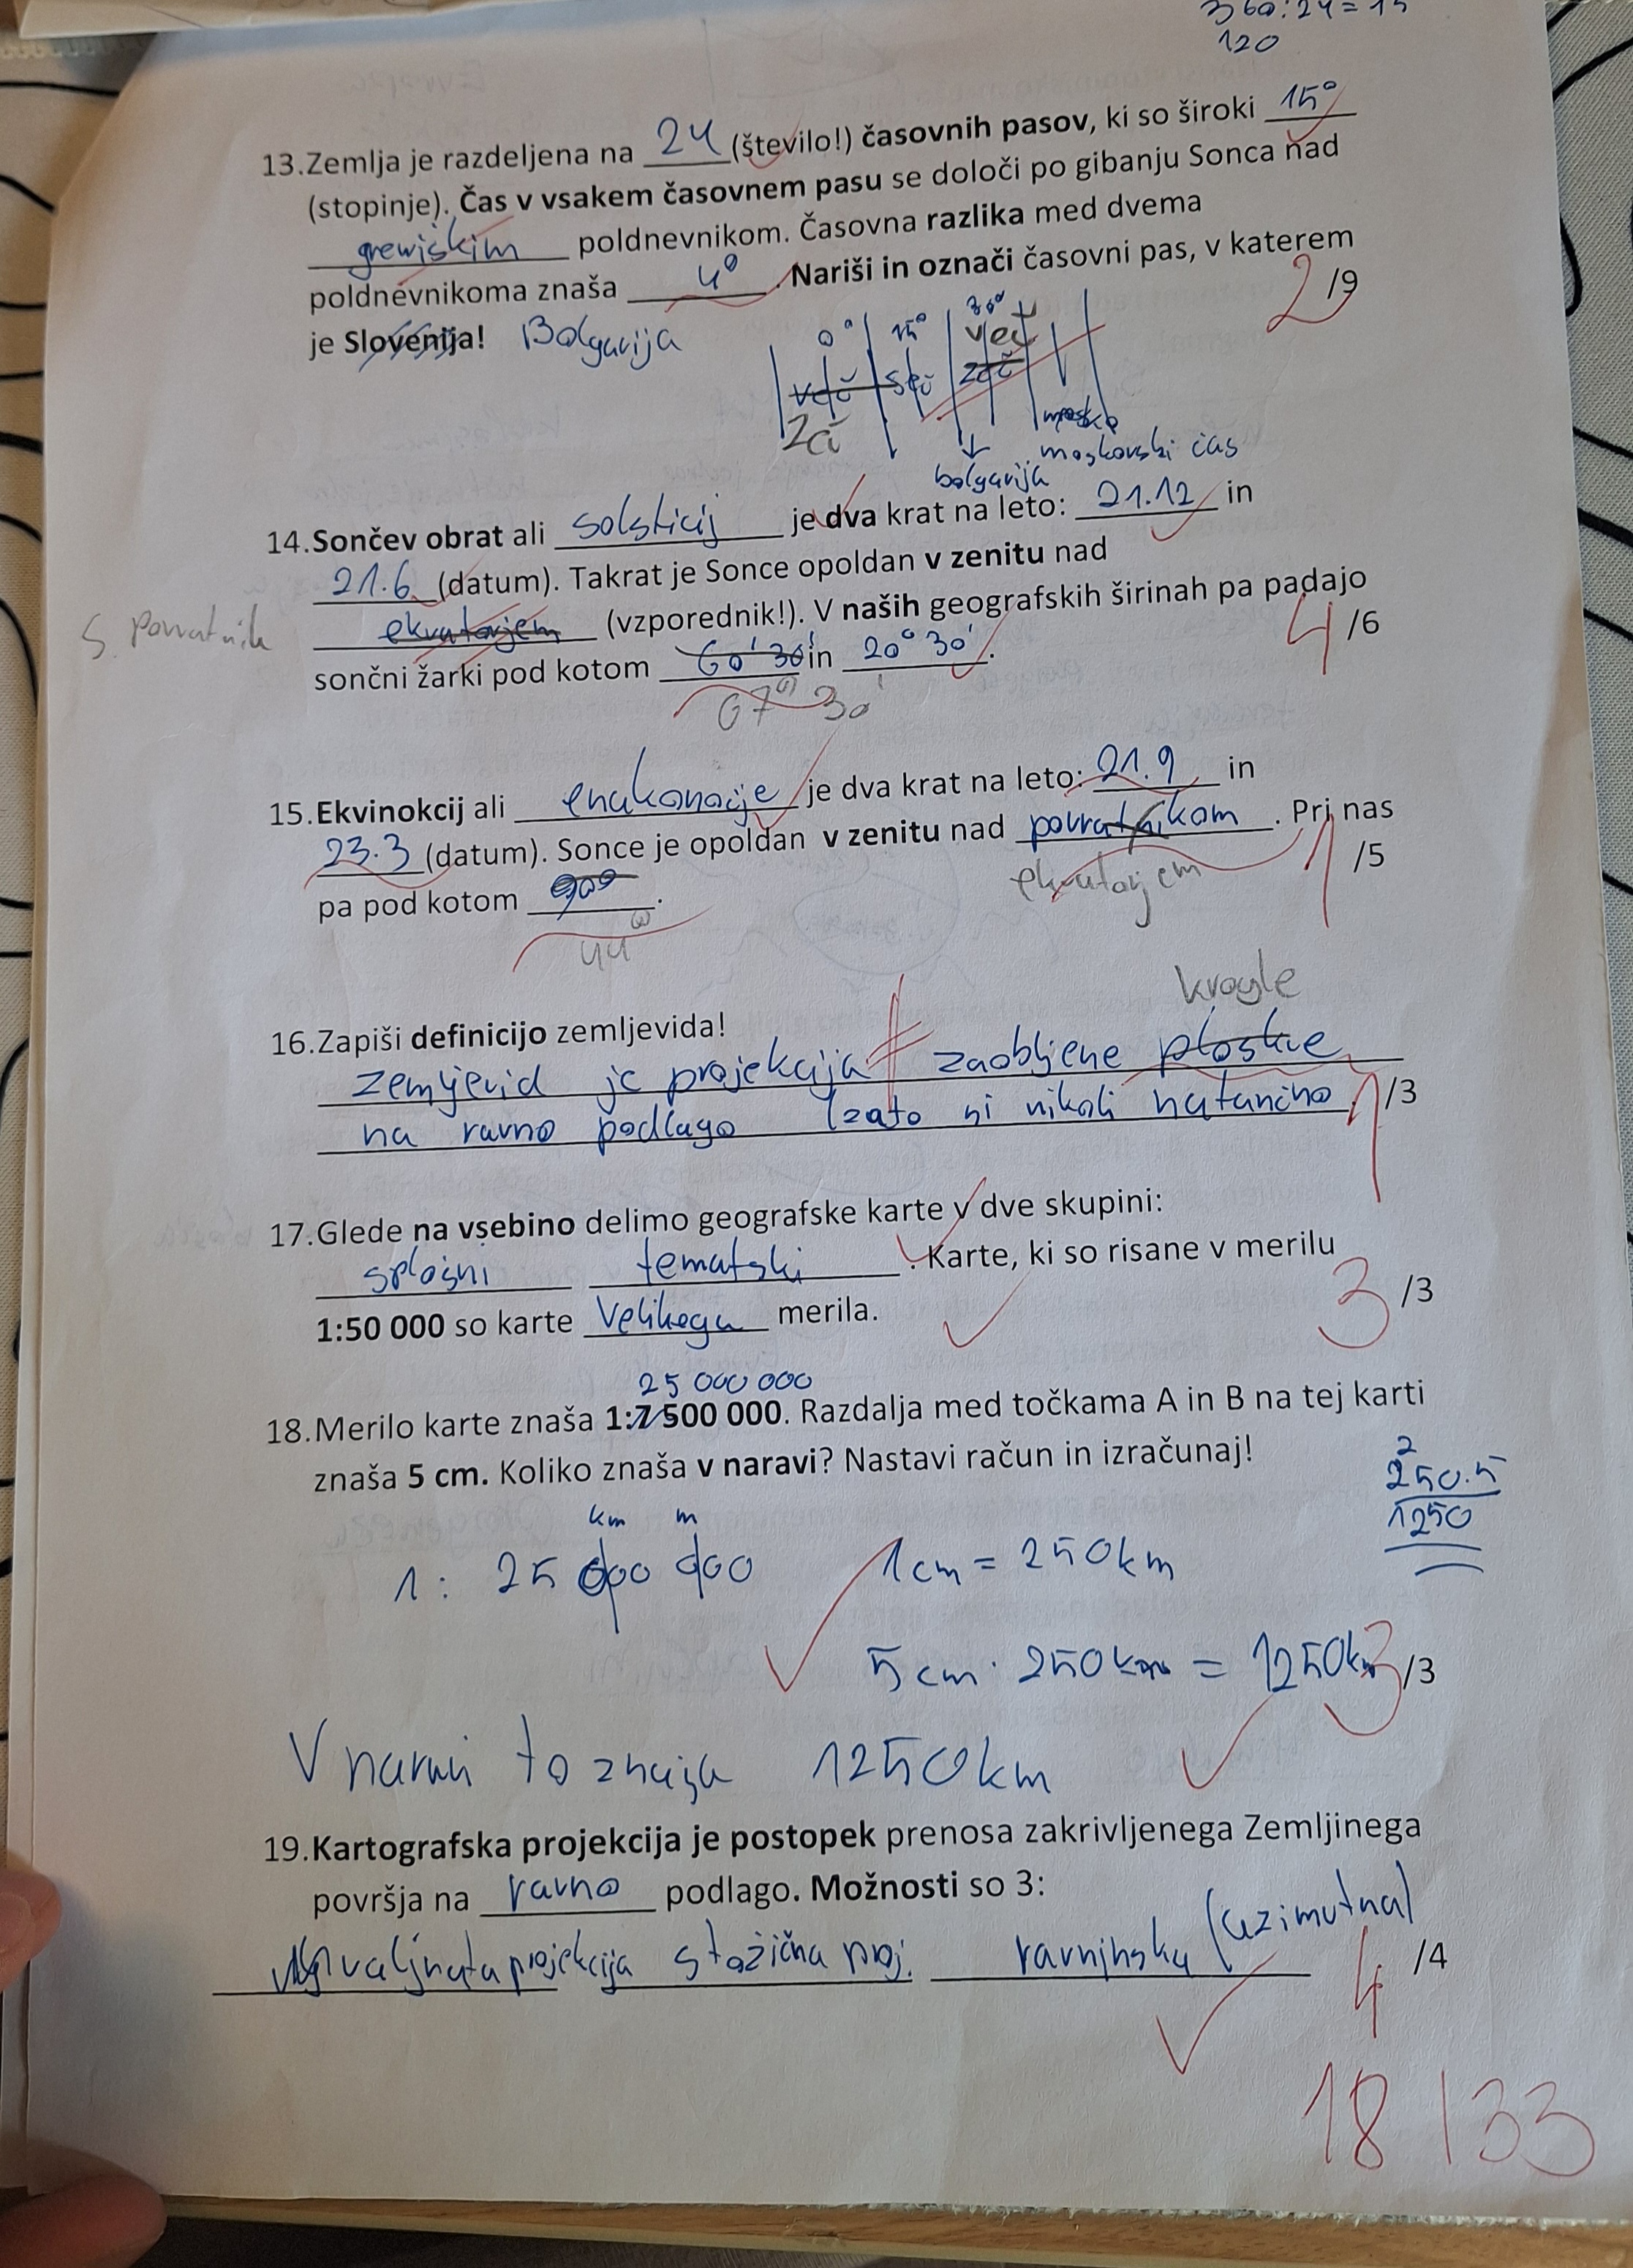 360:24=15
120
13.Zemlja je razdeljena na 24 (število!) časovnih pasov, ki so široki 15°
(stopinje). Čas v vsakem časovnem pasu se določi po gibanju Sonca nad
grewiškim poldnevnikom. Časovna razlika med dvema
poldnevnikoma znaša 4° . Nariši in označi časovni pas, v katerem
je Slovenija! Bolgarija
2 /9
0° 15° 30°
več
več sč zač
zč
mosko
bolgarija moskovski čas
14.Sončev obrat ali solsticij je dva krat na leto: 21.12 in
21.6 (datum). Takrat je Sonce opoldan v zenitu nad
ekvatorjem (vzporednik!). V naših geografskih širinah pa padajo
S. povratnik
4 /6
sončni žarki pod kotom 60' 30' in 20° 30'.
67° 30'
15.Ekvinokcij ali enakonočje je dva krat na leto: 21.9 in
23.3 (datum). Sonce je opoldan v zenitu nad povratnikom . Pri nas
ekvatorjem
1 /5
pa pod kotom 90° .
44°
krogle
16.Zapiši definicijo zemljevida!
zemljevid je projekcija zaobljene ploskve
na ravno podlago (zato ni nikoli natančno.
1 /3
17.Glede na vsebino delimo geografske karte v dve skupini:
splošni tematski . Karte, ki so risane v merilu
1:50 000 so karte velikega merila.
3 /3
25 000 000
18.Merilo karte znaša 1:7 500 000. Razdalja med točkama A in B na tej karti
znaša 5 cm. Koliko znaša v naravi? Nastavi račun in izračunaj!
2
250.5
1250
km m
1: 25 000 000 1cm = 250km
5cm . 250km = 1250km
3 /3
V naravi to znaša 1250km
19.Kartografska projekcija je postopek prenosa zakrivljenega Zemljinega
površja na ravno podlago. Možnosti so 3:
valjnata projekcija stožična proj. ravninska (azimutna)
4 /4
18/33